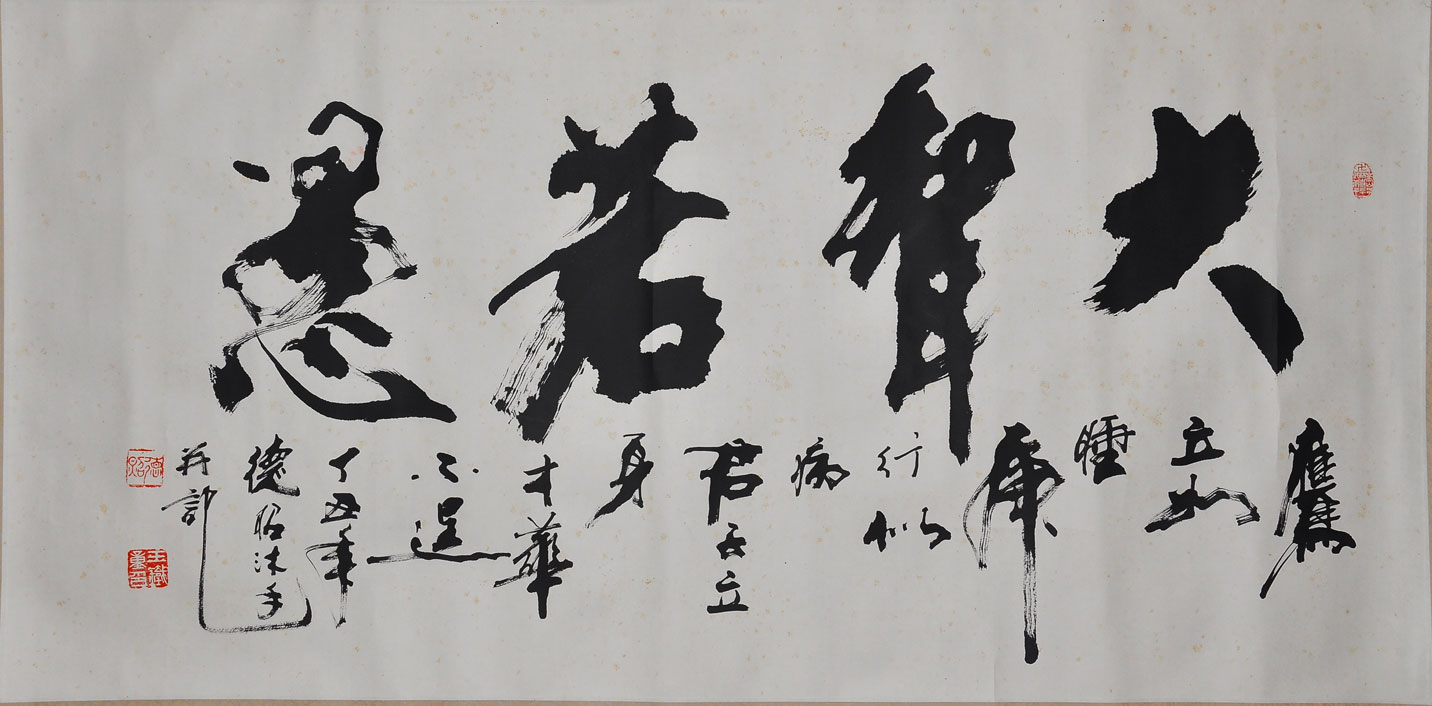 大智若愚
鷹
立如
睡
虎
行似
病
君子立
身
才華
不逞
丁丑年
德昭沐手
并記
德昭